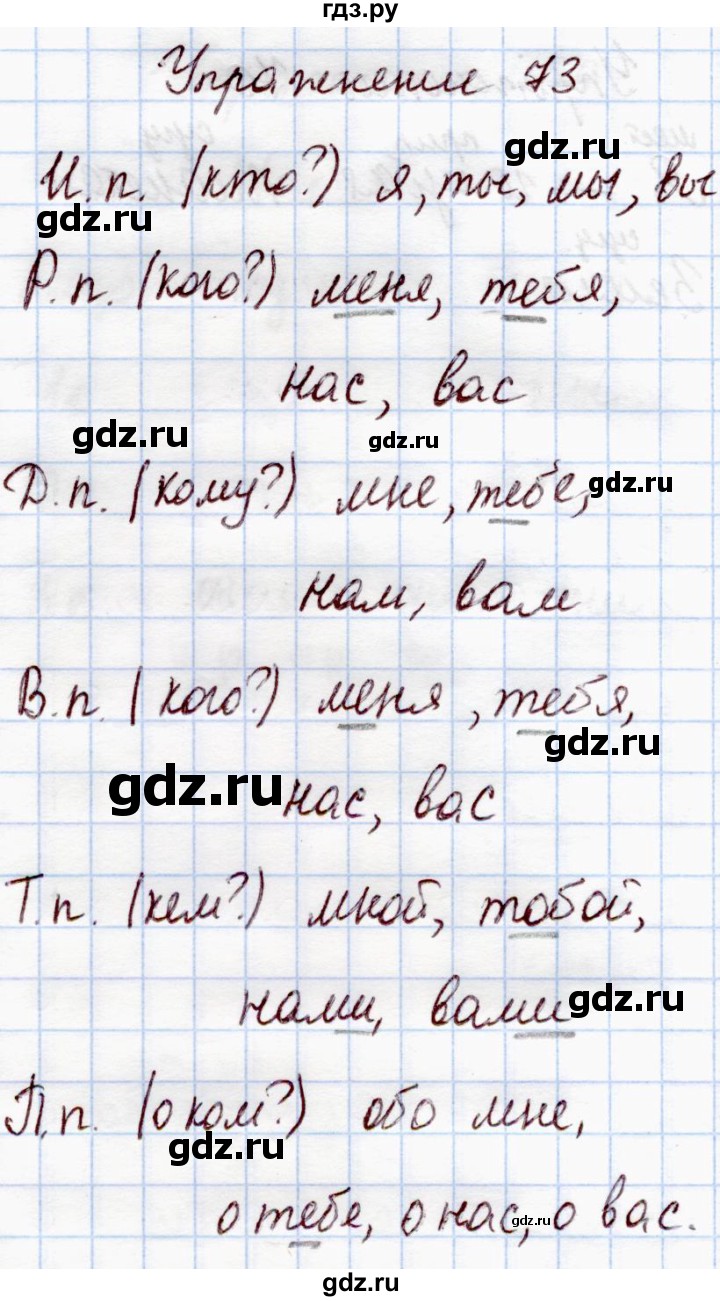 гдз.ру
Упражнение 73
gdz.ru
И.п. (кто?) я, ты, мы, вы
gdz.ru
Р.п. (кого?) меня, тебя,
нас, вас
gdz.ru
gdz.ru
Д.п. (кому?) мне, тебе,
gdz.ru
нам, вам
В.п. (кого?) меня, тебя,
gdz.ru
gdz.ru
нас, вас
Т.п. (кем?) мной, тобой,
нами, вами
gdz.ru
П.п. (о ком?) обо мне,
gdz.ru
о тебе, о нас, о вас.
gdz.ru
gdz.ru